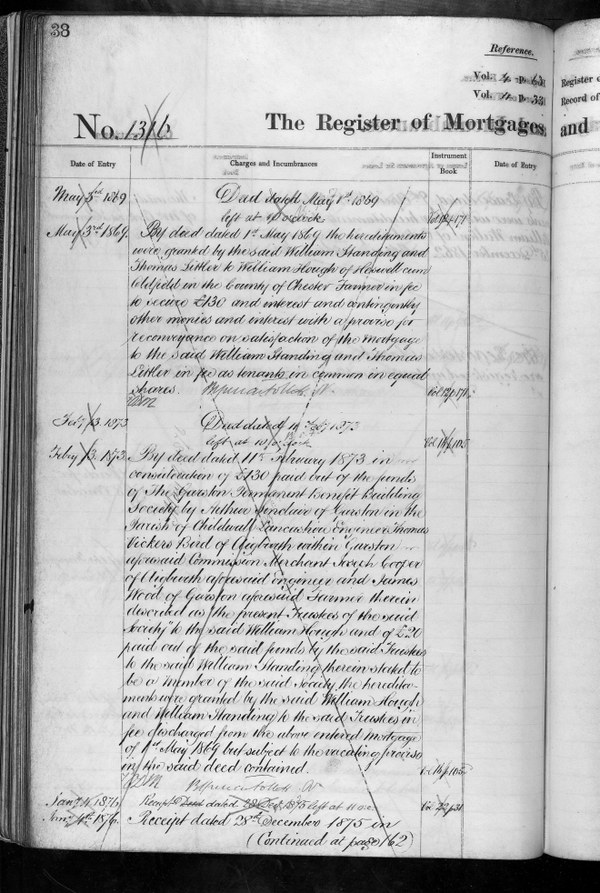 33
Reference.
Vol. 4 P. 63
Vol. 11 P. 33
No. 1316
The Register of Mortgages
and
Register of
Record of
Date of Entry
Charges and Incumbrances
Instrument Book
Date of Entry
May 3rd 1869
Deed dated May 1st 1869
left at o'clock
May 3rd 1869.
By deed dated 1st May 1869 the hereditaments
were granted by the said William Standing and
Thomas Littler to William Hough of Heswell cum
Oldfield in the County of Chester Farmer in fee
to secure £130 and interest and contingently
other monies and interest with a proviso for
reconveyance on satisfaction of the mortgage
to the said William Standing and Thomas
Littler in fee as tenants in common in equal
shares.
Feby 13. 1873
Deed dated 11 Feby 1873
left at o'clock
Feby 13. 1873.
By deed dated 11th February 1873 in
consideration of £130 paid out of the funds
of The Garston Permanent Benefit Building
Society by Arthur Sinclair of Garston in the
Parish of Childwall Lancashire Engineer Thomas
Vickers Bird of Aigburth within Garston
aforesaid Commission Merchant Joseph Cooper
of Aigburth aforesaid Engineer and James
Wood of Garston aforesaid Farmer therein
described as "the present Trustees of the said
Society" to the said William Hough and of £20
paid out of the said funds by the said Trustees
to the said William Standing therein stated to
be a member of the said Society the heredita-
ments were granted by the said William Hough
and William Standing to the said Trustees in
fee discharged from the above entered Mortgage
of 1st May 1869 but subject to the vacating proviso
in the said deed contained.
Jany 4. 1876
Receipt dated 28 Dec 1875 left at 11
Jany 4th 1876.
Receipt dated 28th December 1875 in
(Continued at page 162)